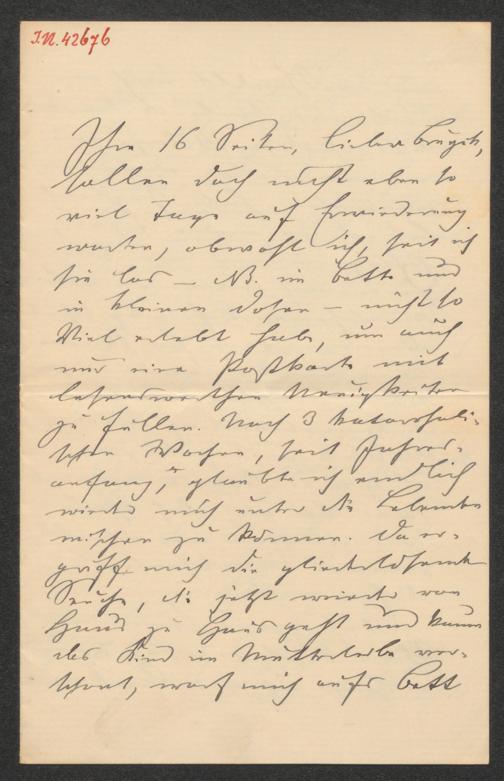 I.N. 42676
Ihre 16 Seiten, lieber
sollen doch nicht eben so
viel Tage auf Erwiederung
warten, obwohl ich, seit ich
sie las – NB. im Bette und
in kleinen Dosen – nicht so
Viel erlebt habe, um auch
nur eine Postkarte mit
lesenswerthen Neuigkeiten
zu füllen. Nach 3 katarrhali-
schen Wochen, seit Jahres-
anfang, glaubte ich endlich
wieder mich unter die Lebenden
mischen zu können. Da er-
griff mich die gliederlösende
Seuche, die jetzt wieder von
Haus zu Haus geht und kaum
das Kind im Mutterleibe ver-
schont, warf mich aufs Bett